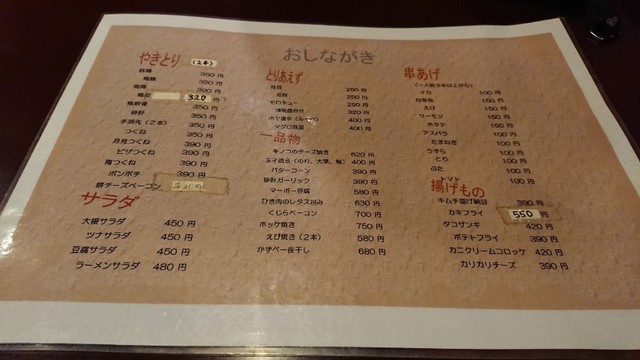 おしながき
やきとり (2本)
350 円
350 円
300 円
320 円
350 円
砂肝 350 円
手羽先(2本) 350 円
つくね 350 円
月見つくね 390 円
ピザつくね 390 円
梅つくね 390 円
ポンポチ 390 円
餅チーズベーコン
サラダ
大根サラダ 450 円
ツナサラダ 450 円
豆腐サラダ 450 円
ラーメンサラダ 480 円
とりあえず
枝豆 250 円
250 円
モロキュー 250 円
320 円
400 円
マグロ 400 円
一品物
キノコのチーズ焼き 620 円
玉子焼き(のり、大葉、葱) 400 円
バターコーン 390 円
砂肝ガーリック 390 円
マーボー豆腐 580 円
ひき肉のレタス包み 630 円
くじらベーコン 700 円
ホッケ焼き 750 円
えび焼き(2本) 580 円
かすべ一夜干し 680 円
串あげ
イカ 100 円
150 円
えび 150 円
サーモン 150 円
ホタテ 150 円
アスパラ 100 円
たまねぎ 100 円
うずら 100 円
とり 100 円
ぶた 100 円
トマト 100 円
揚げもの
キムチ揚げ納豆 390 円
カキフライ 550 円
タコザンギ 420 円
ポテトフライ 390 円
カニクリームコロッケ 420 円
カリカリチーズ 390 円